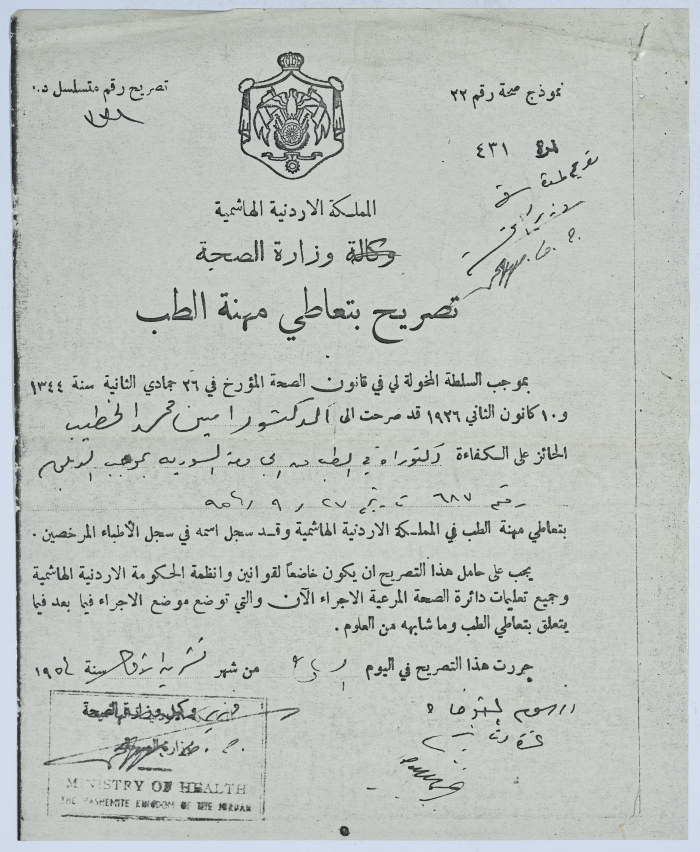 تصريح رقم متسلسل د.
نموذج صحة رقم ٢٢
٤٣١
المملكة الاردنية الهاشمية
وكالة وزارة الصحة
تصريح بتعاطي مهنة الطب
بموجب السلطة المخولة لي في قانون الصحة المؤرخ في ٢٦ جمادي الثانية سنة ١٣٤٤
و١٠ كانون الثاني ١٩٢٦ قد صرحت الى الدكتور امين محمد الخطيب
الحائز على الكفاءة دكتوراه في الطب من الجامعة السورية بموجب
رقم ٦٨٧ تاريخ ٢٧
بتعاطي مهنة الطب في المملكة الاردنية الهاشمية وقد سجل اسمه في سجل الأطباء المرخصين .
يجب على حامل هذا التصريح ان يكون خاضعاً لقوانين وانظمة الحكومة الاردنية الهاشمية
وجميع تعليمات دائرة الصحة المرعية الاجراء الآن والتي توضع موضع الاجراء فيما بعد فيما
يتعلق بتعاطي الطب وما شابهه من العلوم .
حررت هذا التصريح في اليوم من شهر تشرين الاول سنة ١٩٥
وكيل وزارة الصحة
MINISTRY OF HEALTH
THE HASHEMITE KINGDOM OF THE JORDAN